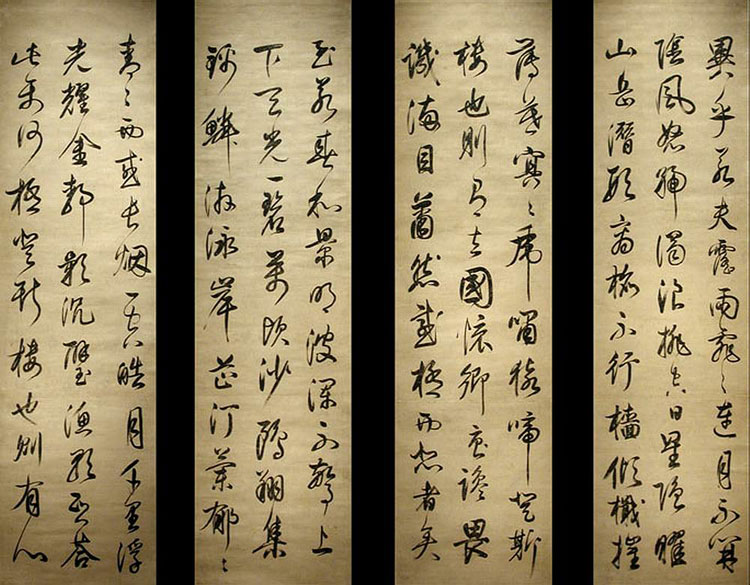 異乎若夫霪雨霏〻連月不開
陰風怒號濁浪排空日星隱曜
山岳潛形商旅不行檣傾檝摧
薄暮冥〻虎嘯猿啼登斯
樓也則有去國懷鄉憂讒畏
譏滿目蕭然感極而悲者矣
至若春和景明波瀾不驚上
下天光一碧萬頃沙鷗翔集
錦鱗游泳岸芷汀蘭郁〻
青〻而或長烟一空皓月千里浮
光耀金靜影沉璧漁歌互答
此樂何極登斯樓也則有心